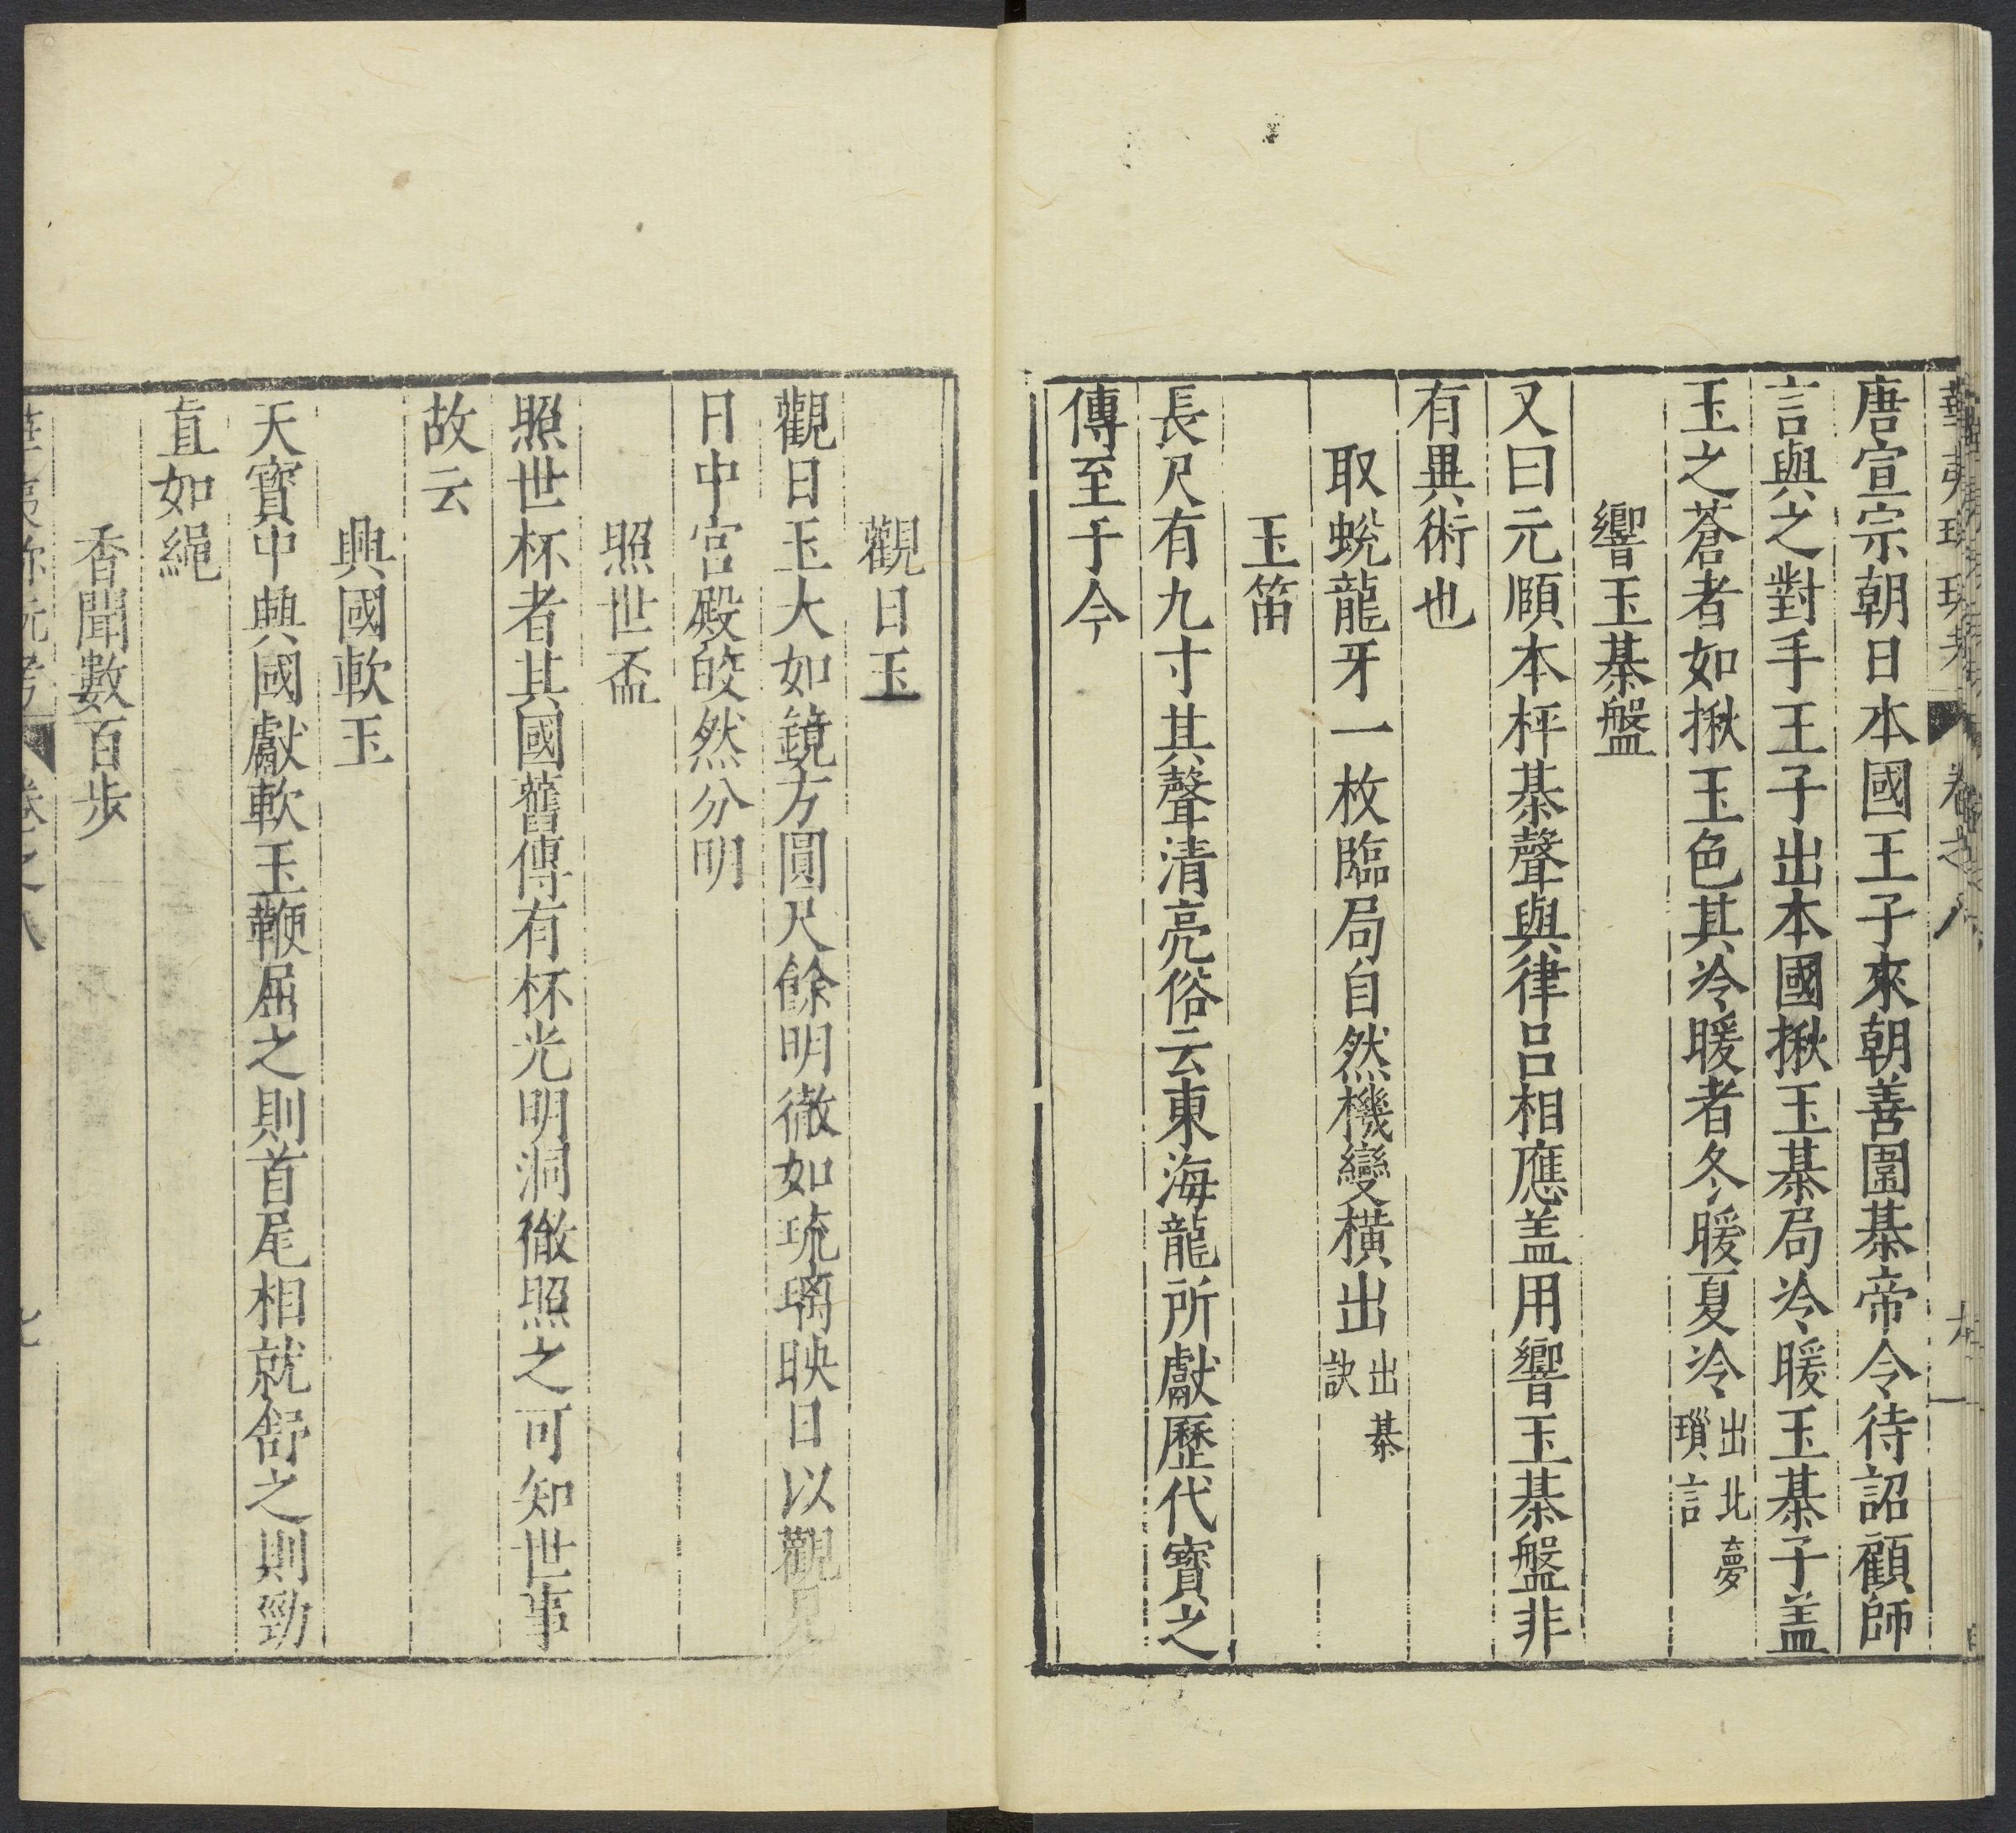 唐宣宗朝日本國王子來朝善圍棊帝令待詔顧師
言與之對手王子出本國揪玉棊局冷暖玉棊子盖
玉之蒼者如揪玉色其冷暖者冬暖夏冷出北夢瑣言
響玉棊盤
又曰元頤本枰棊聲與律呂相應盖用響玉棊盤非
有異術也
取蛻龍牙一枚臨局自然機變橫出出棊訣
玉笛
長尺有九寸其聲清亮俗云東海龍所獻歷代寶之
傳至于今
觀日玉
觀日玉大如鏡方圓尺餘明徹如琉璃映日以觀見
日中宮殿皎然分明
照世盃
照世杯者其國舊傳有杯光明洞徹照之可知世事
故云
興國軟玉
天寶中興國獻軟玉鞭屈之則首尾相就舒之則勁
直如繩
香聞數百步
卷之八